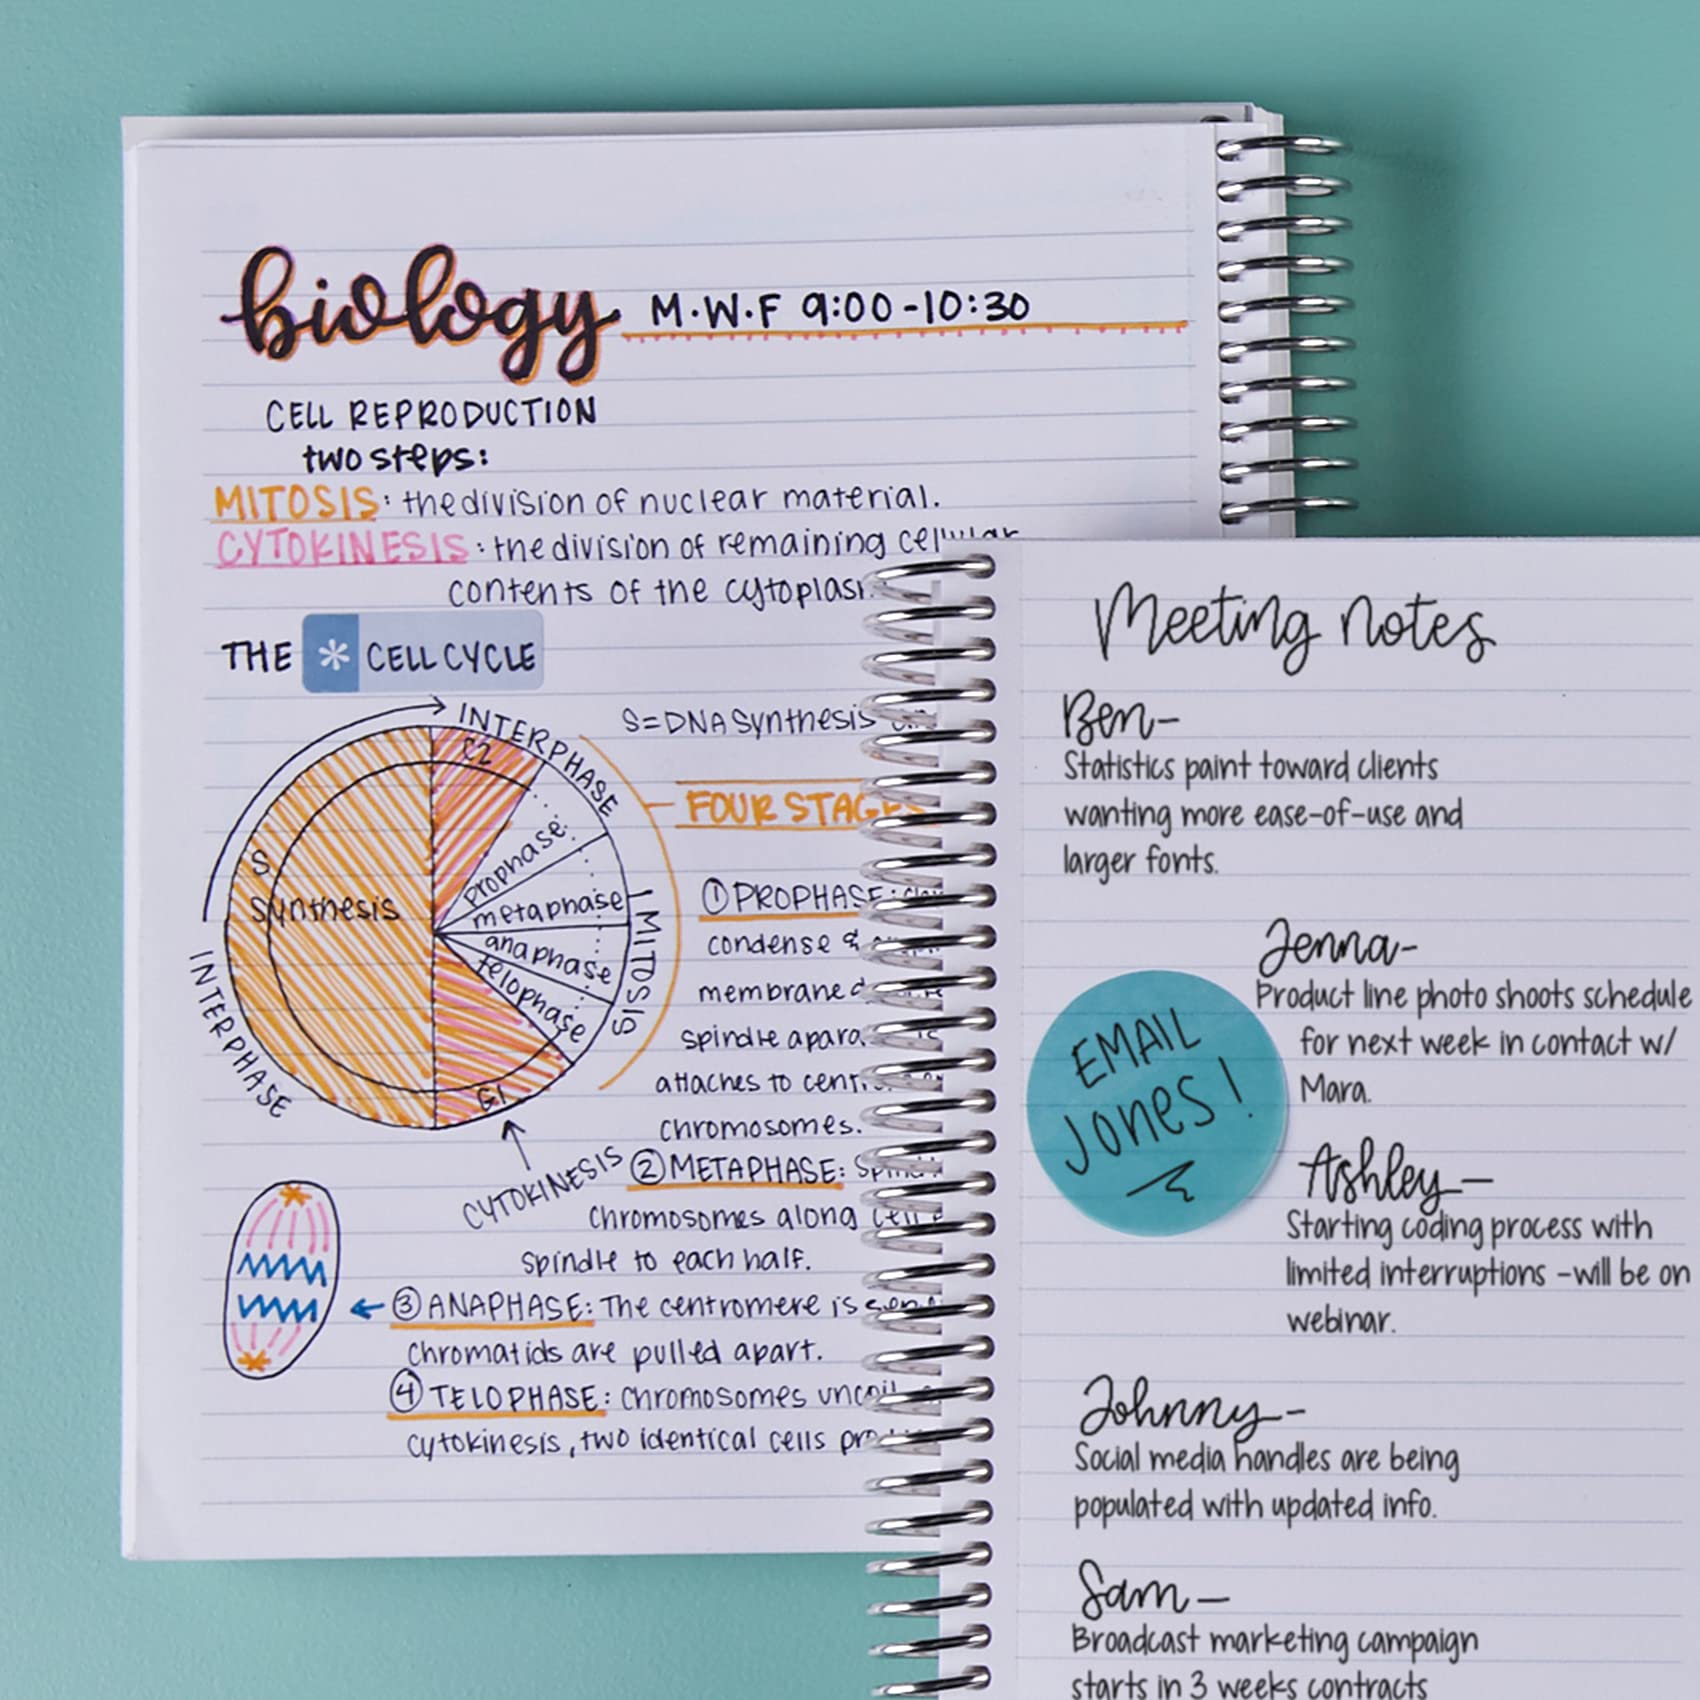 biology M.W.F 9:00-10:30
CELL REPRODUCTION
two steps:
MITOSIS: the division of nuclear material.
CYTOKINESIS: the division of remaining cellular
contents of the cytoplasm
THE * CELL CYCLE
INTERPHASE
S=DNA Synthesis
G2
FOUR STAGES
S
synthesis
prophase
metaphase
anaphase
telophase
MITOSIS
INTERPHASE
G1
CYTOKINESIS
① PROPHASE:
condense &
membrane
spindle
attaches to
chromosomes.
② METAPHASE:
chromosomes along cell
spindle to each half.
③ ANAPHASE: The centromere is
chromatids are pulled apart.
④ TELOPHASE: chromosomes uncoil
cytokinesis, two identical cells
Meeting notes
Ben-
Statistics paint toward clients
wanting more ease-of-use and
larger fonts.
Jenna-
Product line photo shoots schedule
for next week in contact w/
Mara.
EMAIL
JONES!
Ashley-
Starting coding process with
limited interruptions -will be on
webinar.
Johnny-
Social media handles are being
populated with updated info.
Sam-
Broadcast marketing campaign
starts in 3 weeks contracts